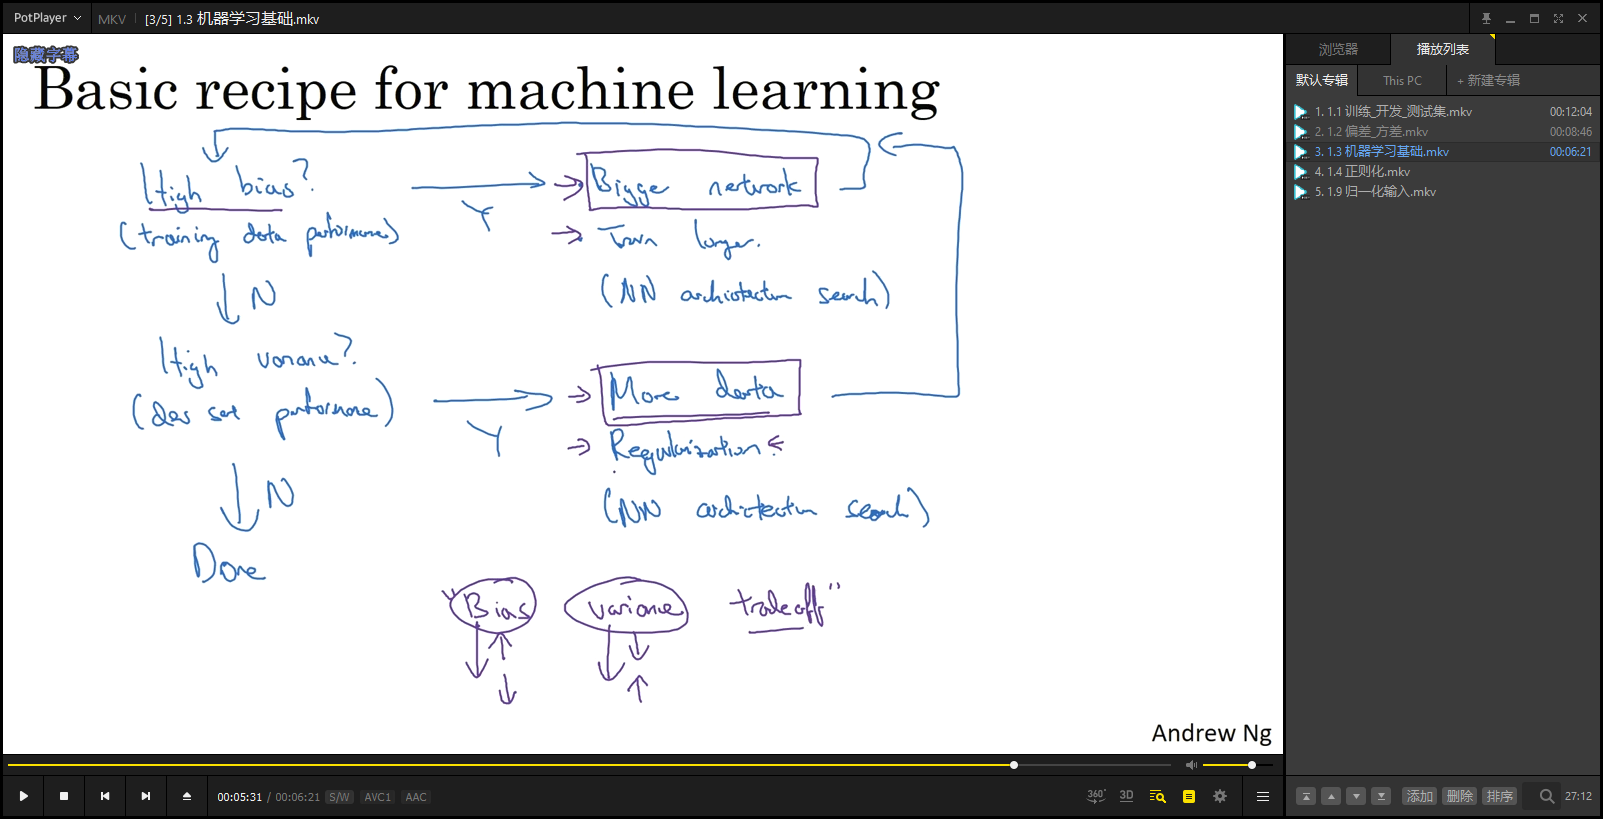 PotPlayer MKV [3/5] 1.3 机器学习基础.mkv
隐藏字幕
Basic recipe for machine learning
High bias?
(training data performance)
Y
Bigger network
Train longer.
(NN architecture search)
N
High variance?
(dev set performance)
Y
More data
Regularization.
(NN architecture search)
N
Done
"Bias variance tradeoff"
Andrew Ng
00:05:31 / 00:06:21 S/W AVC1 AAC
360° 3D
浏览器 播放列表
默认专辑 This PC + 新建专辑
1. 1.1 训练_开发_测试集.mkv 00:12:04
2. 1.2 偏差_方差.mkv 00:08:46
3. 1.3 机器学习基础.mkv 00:06:21
4. 1.4 正则化.mkv
5. 1.9 归一化输入.mkv
添加 删除 排序 27:12